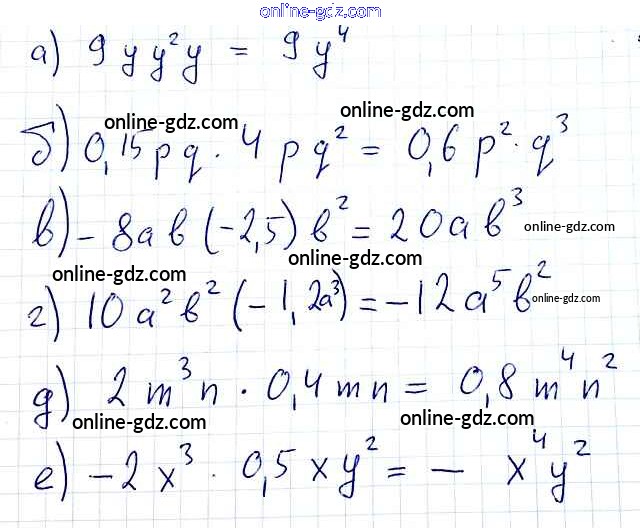 online-gdz.com
а) 9 y y² y = 9 y⁴
online-gdz.com
online-gdz.com
б) 0,15 p q · 4 p q² = 0,6 p² · q³
в) - 8 a b (-2,5) b² = 20 a b³
online-gdz.com
online-gdz.com
online-gdz.com
г) 10 a² b² (-1,2a³) = -12 a⁵ b²
online-gdz.com
д) 2 m³ n · 0,4 m n = 0,8 m⁴ n²
online-gdz.com
online-gdz.com
е) -2 x³ · 0,5 x y² = - x⁴ y²